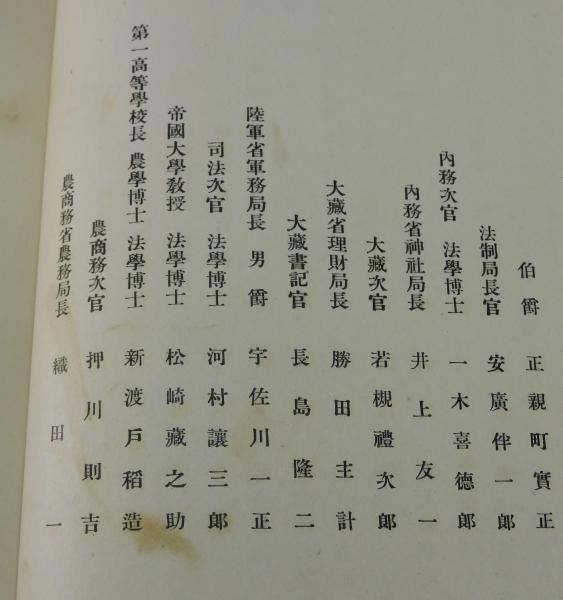 伯爵 正親町實正
法制局長官 安廣伴一郎
內務次官 法學博士 一木喜德郎
內務省神社局長 井上友一
大藏次官 若槻禮次郎
大藏省理財局長 勝田主計
大藏書記官 長島隆二
陸軍省軍務局長 男爵 宇佐川一正
司法次官 法學博士 河村讓三郎
帝國大學敎授 法學博士 松崎藏之助
第一高等學校長 農學博士 法學博士 新渡戶稻造
農商務次官 押川則吉
農商務省農務局長 織田一